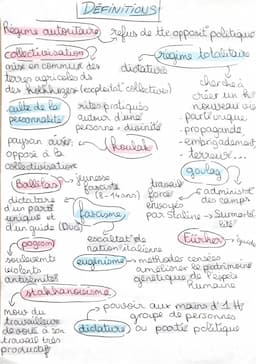 DÉFINITIONS
Régime autoritaire → refus de tte opposit° politique
collectivisation
mise en commun des terres agricoles ds des kolkhozes (exploitat° collective)
régime totalitaire
dictature
cherche à créer un
nouveau
- parti unique
- propagande
- embrigadement
- terreur...
culte de la personnalité
rites pratiqués autour d'une personne = divinité
paysan aisé opposé à la collectivisation
koulak
goulag
Balillas
jeunesse fasciste (8-14 ans)
travaux forcés
envoyés par Staline
administrat°
des camps
→ Surmortalité
dictature d'un parti unique et d'un guide (Duce)
fascisme
exaltat° de nation italienne
Führer → guide
pogrom
soulèvements violents antisémites
eugénisme → méthodes censées améliorer le patrimoine génétique de l'espèce humaine
stakhanovisme
mouv du travailleur dévoué à son travail très productif
dictature
pouvoir aux mains d'1 H, groupe de personnes ou parti politique